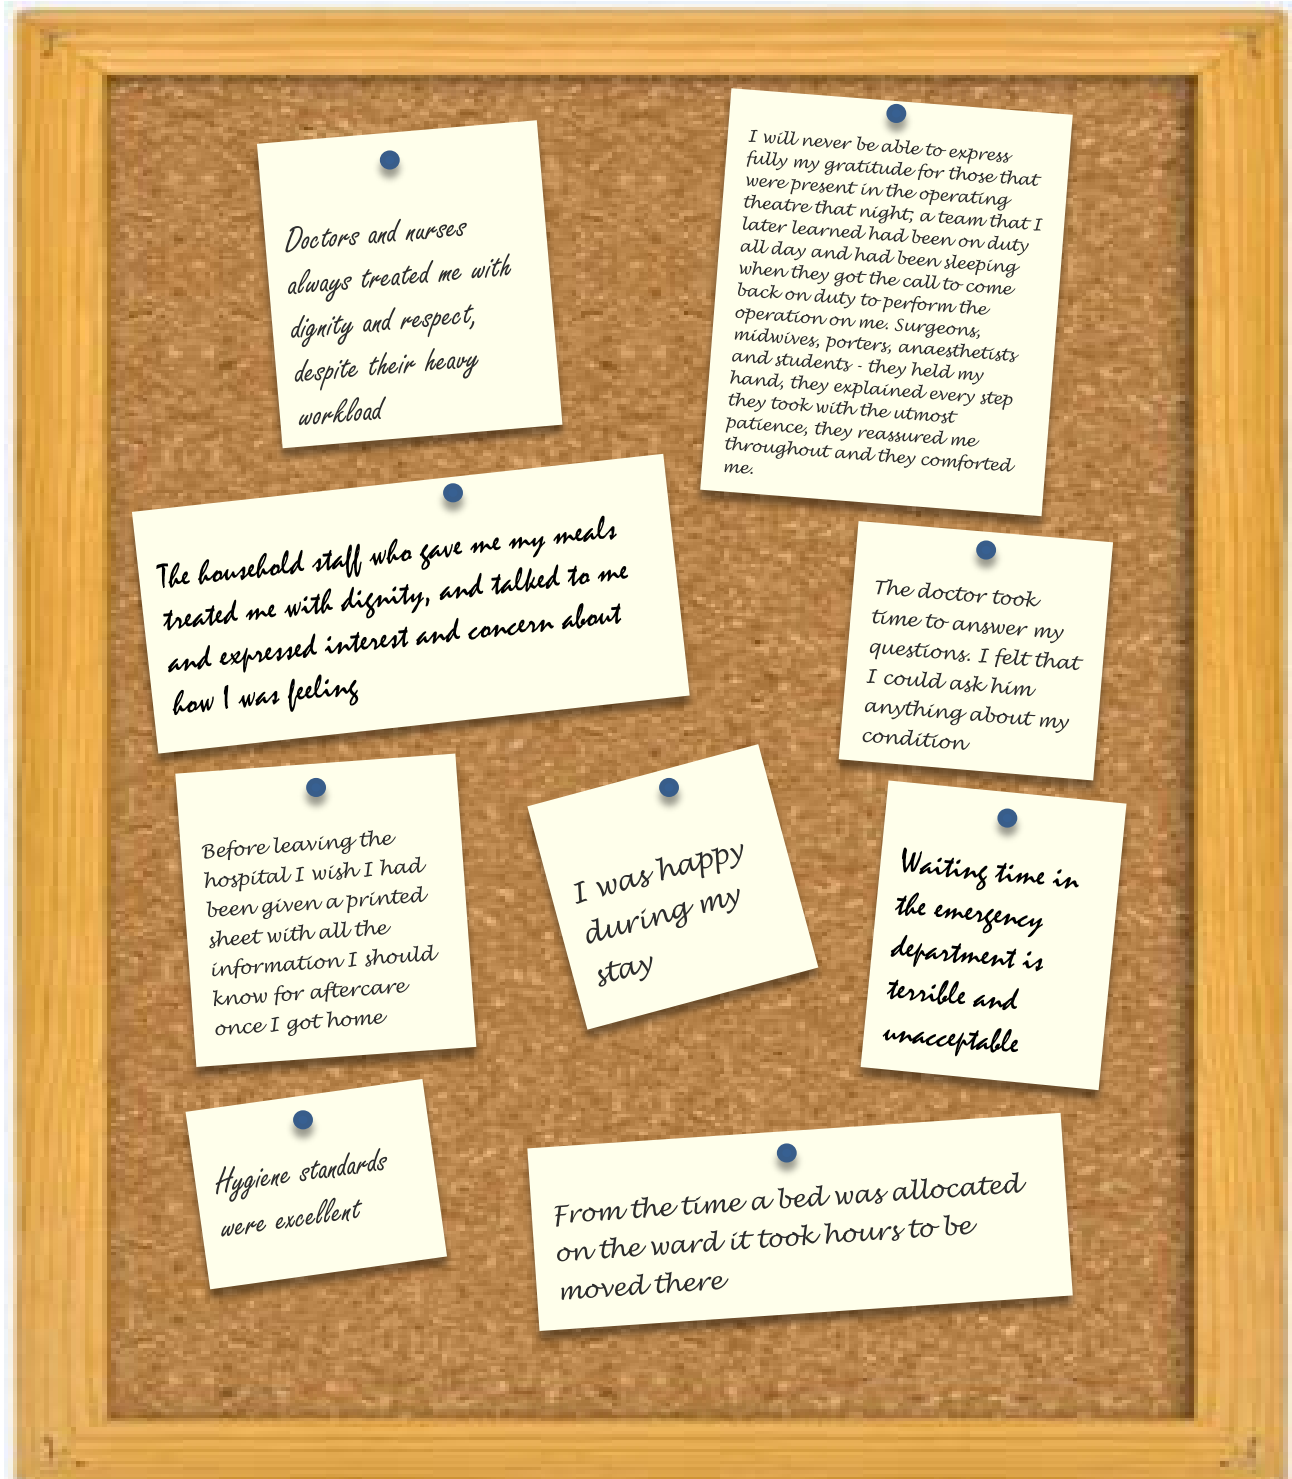 Doctors and nurses
always treated me with
dignity and respect,
despite their heavy
workload
I will never be able to express
fully my gratitude for those that
were present in the operating
theatre that night; a team that I
later learned had been on duty
all day and had been sleeping
when they got the call to come
back on duty to perform the
operation on me. Surgeons,
midwives, porters, anaesthetists
and students - they held my
hand, they explained every step
they took with the utmost
patience, they reassured me
throughout and they comforted
me.
The household staff who gave me my meals
treated me with dignity, and talked to me
and expressed interest and concern about
how I was feeling
The doctor took
time to answer my
questions. I felt that
I could ask him
anything about my
condition
Before leaving the
hospital I wish I had
been given a printed
sheet with all the
information I should
know for aftercare
once I got home
I was happy
during my
stay
Waiting time in
the emergency
department is
terrible and
unacceptable
Hygiene standards
were excellent
From the time a bed was allocated
on the ward it took hours to be
moved there